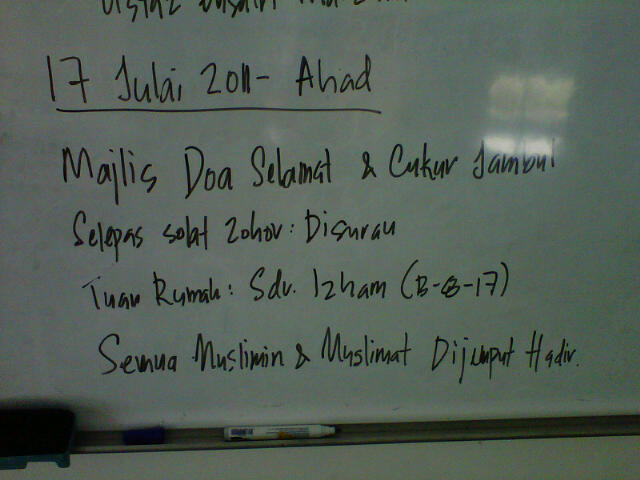 17 Julai 2011 - Ahad
Majlis Doa Selamat & Cukur Jambul
Selepas solat Zohor : Disurau
Tuan Rumah : Sdr. Izham (B-8-17)
Semua Muslimin & Muslimat Dijemput Hadir.